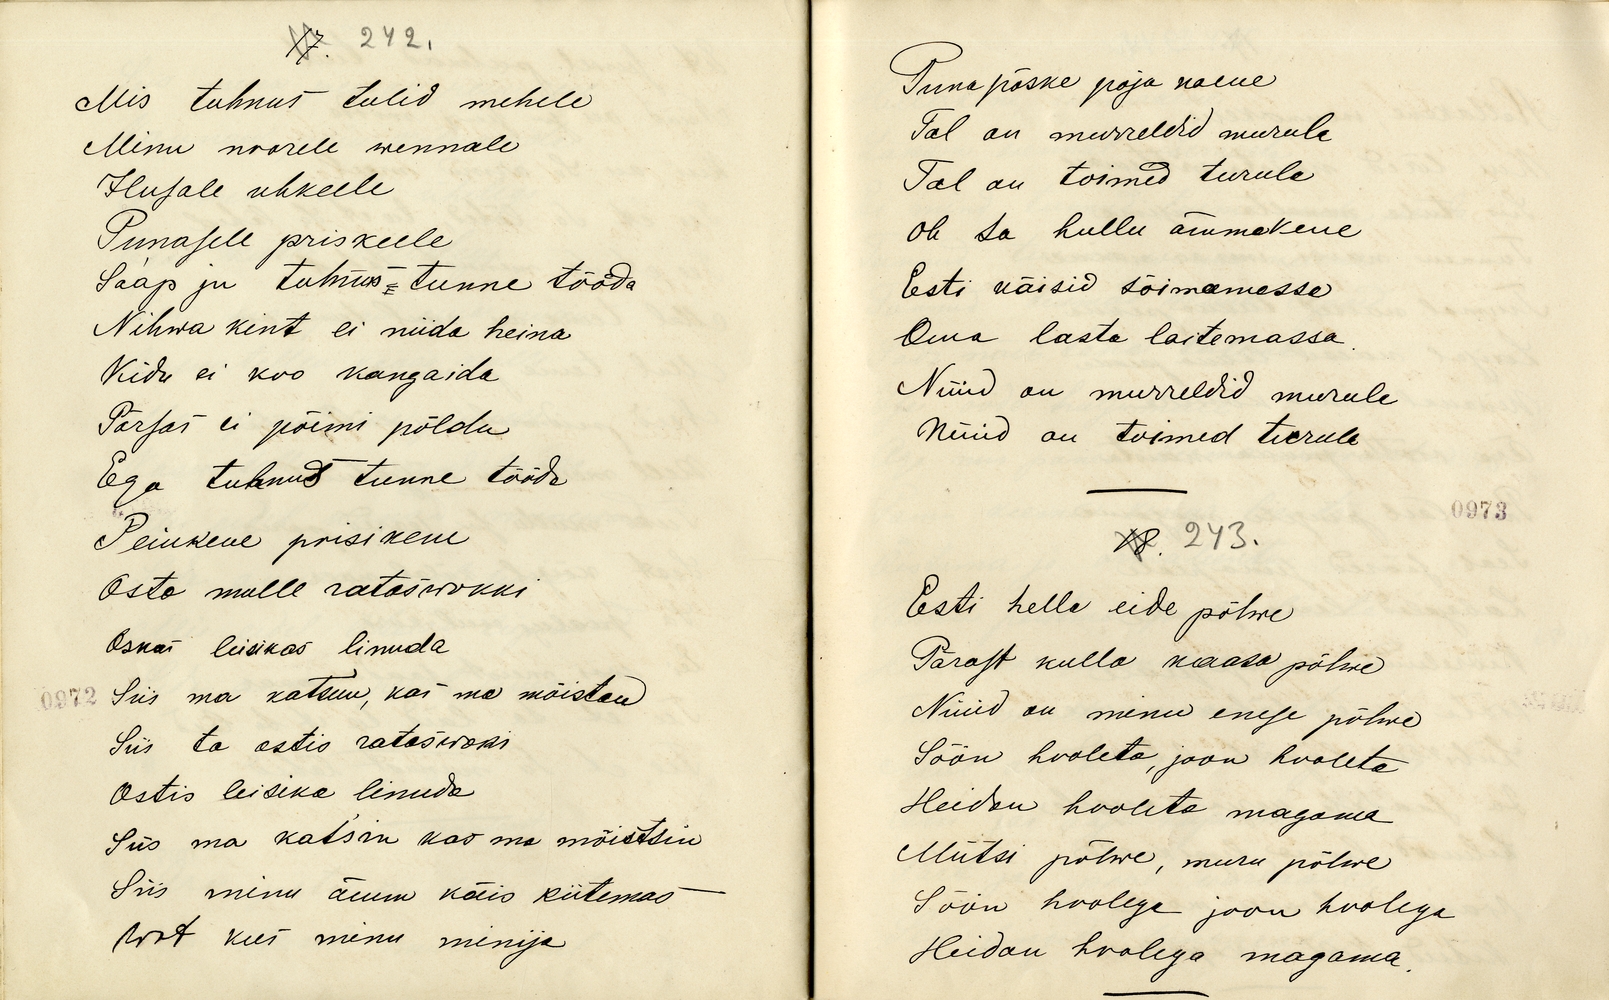 17. 242.
Mis tuhnus tulid mehele
Minu noorele wennale
Ilusale uhkeele
Punasele priskeele
Saap ju tuhnus = tunne tööda
Nihwakint ei niida heina
Kidu ei koo kangaida
Pärsas ei põimi põldu
Ega tuhnus tunne tööda
Peiukene prisikene
Osta mulle ratas wokki
Oskas leisikas linuda
0972
Siis ma katsun, kas ma mõistan
Siis ta ostis rataswoki
Ostis leisika linuda
Siis ma katsin kas ma mõistsin
Siis minu ämm käis kiitemas
Wot kus minu minija
Puna põske poja naene
Tal on murreldid murule
Tal on toimed turule
Oh sa hullu ämmekene
Esti käisid sõimamesse
Oma lasta laitemassa.
Nüüd on murreldid murule
Nüüd on toimed turule
0973
18. 243.
Esti hella eide põlwe
Pärast kulla kaasa põlwe
Nüüd on minu enese põlwe
Söön hooleta, joon hooleta
Heidan hooleta magama
Mütsi põlwe, muru põlwe
Söön hoolega joon hoolega
Heidan hoolega magama.